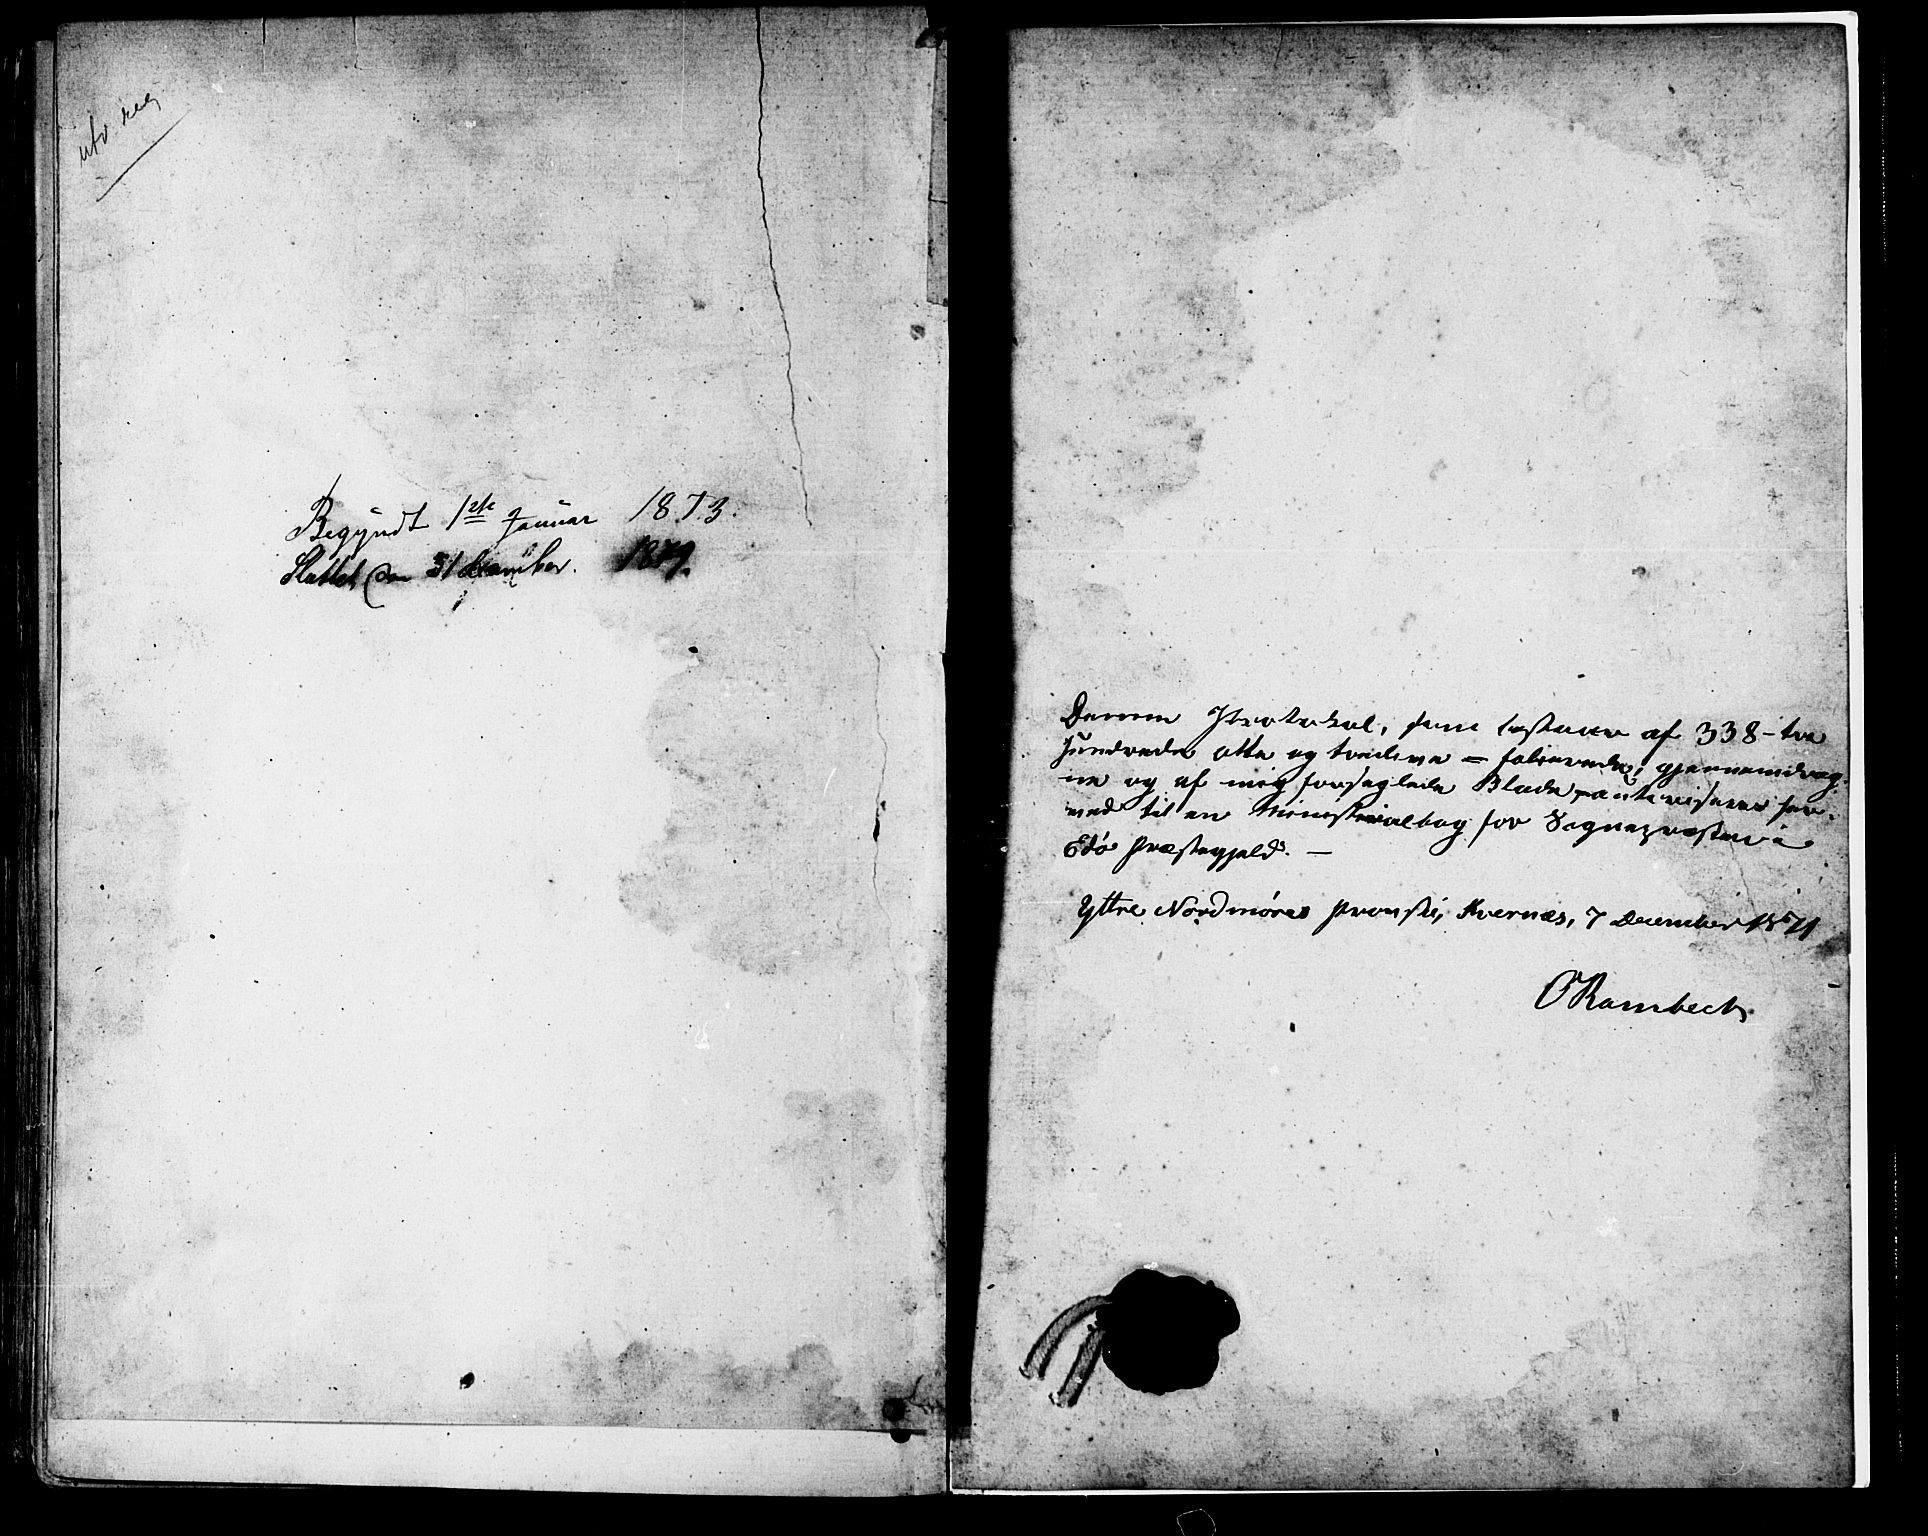 utv reg
Begyndt 1ste Januar 1873.
Sluttet den 31 December. 1879.
Denne Protokol, som bestaaer af 338 - tre
hundrede otte og tredive = folierede, gjennemdrag-
ne og af mig forseglede Blade, autoriseres her-
ved til en Ministerialbog for Sognepresten i
Edø Præstegjeld. —
Yttre Nordmøres Provsti, Kvernæs, 7 December 1871
ORambech